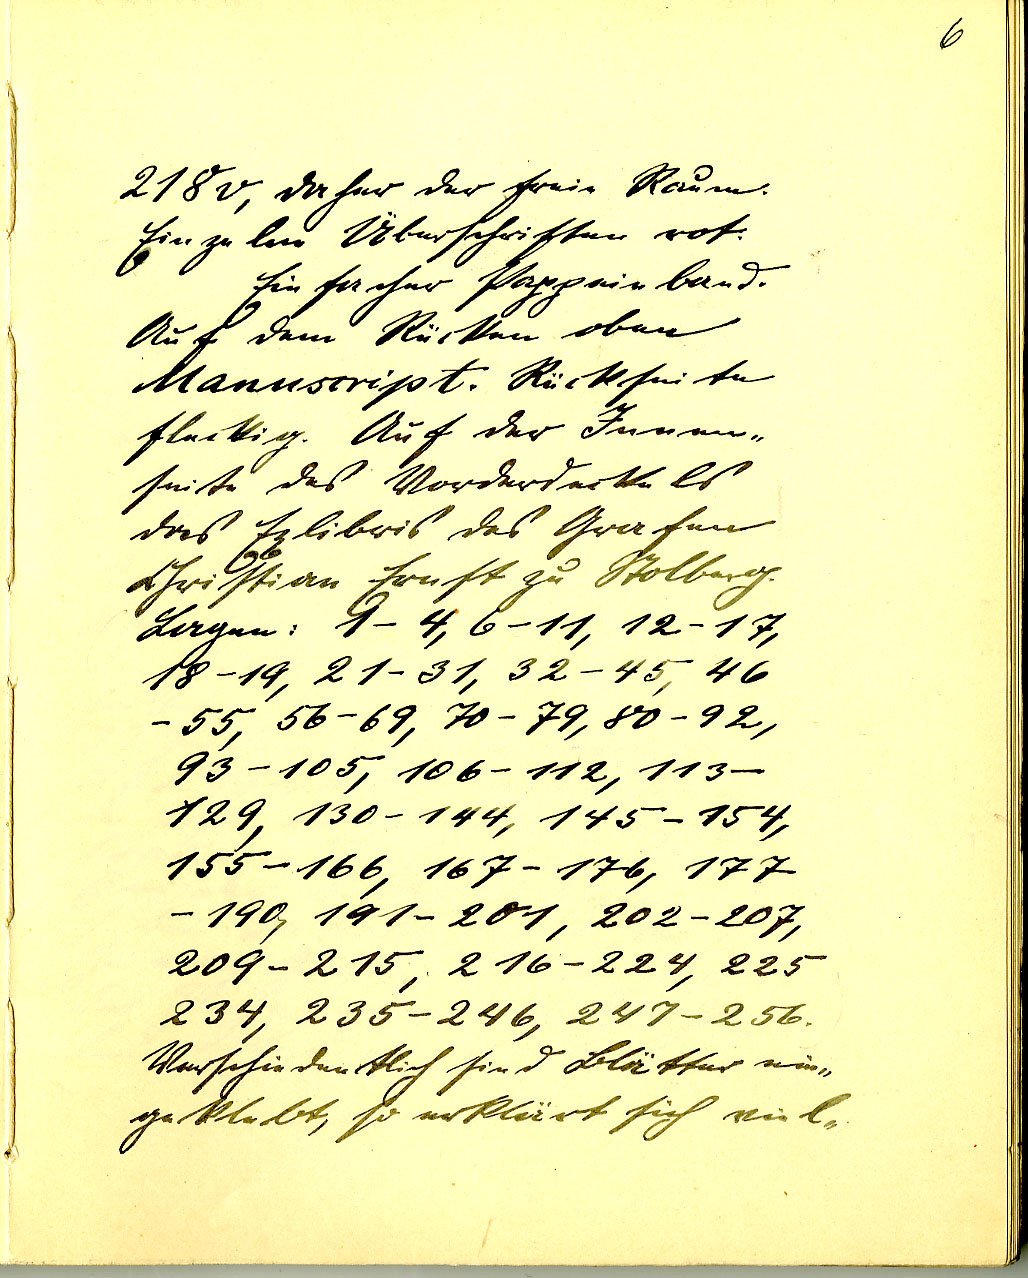 6
218v, daher der freie Raum.
Einzelne Überschriften rot.
Einfacher Pappeinband.
Auf dem Rücken oben
Manuscript. Rückseite
fleckig. Auf der Innen„
seite des Vorderdeckels
das Exlibris des Grafen
Christian Ernst zu Stolberg.
Lagen: 1-4, 6-11, 12-17,
18-19, 21-31, 32-45, 46
-55, 56-69, 70-79, 80-92,
93-105, 106-112, 113-
129, 130-144, 145-154,
155-166, 167-176, 177
-190, 191-201, 202-207,
209-215, 216-224, 225
234, 235-246, 247-256.
Verschiedentlich sind Blätter ein„
geklebt, so erklärt sich viel„